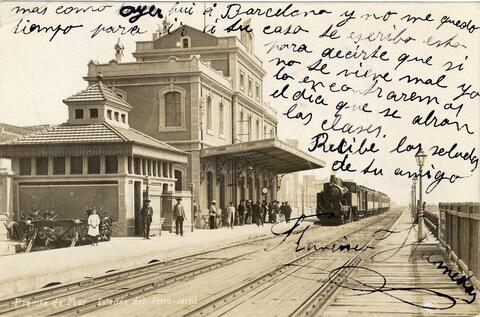 mas como ayer fui á Barcelona y no me quedo
tiempo para ir á su casa te escribo esta
para decirte que si
no se vieve mal yo
la encontraremos
el dia que se abran
las clases.
Recibe los saludos
de tu amigo
Francisco
Premiá de Mar Estación del Ferro-carril